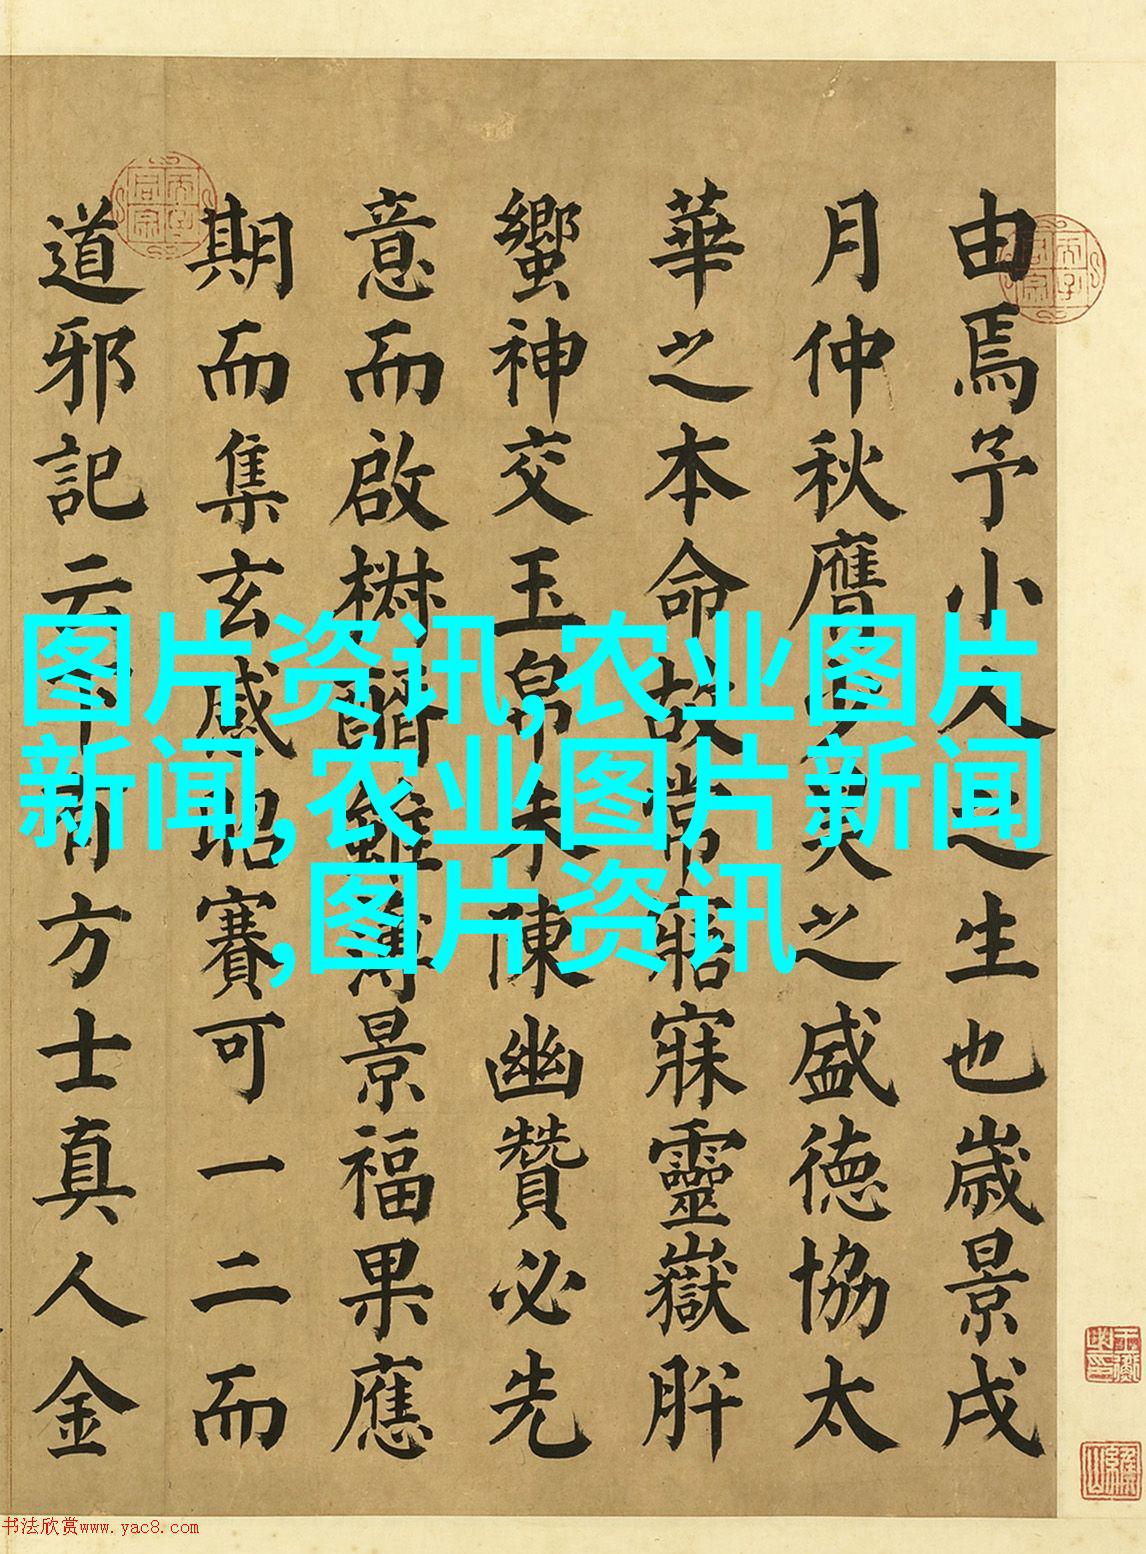 由焉予小人之生也歲景戌
月仲秋膺少昊之盛德協太
華之本命故常寤寐靈嶽肸
蠁神交玉帛未陳幽贊必先
意而啟椒醑雖薄景福果應
期而集玄感昭賽可一二而
道邪記云有方士真人金
图片资讯,农业图片
新闻,农业图片新闻
,图片资讯
书法欣赏www.yac8.com